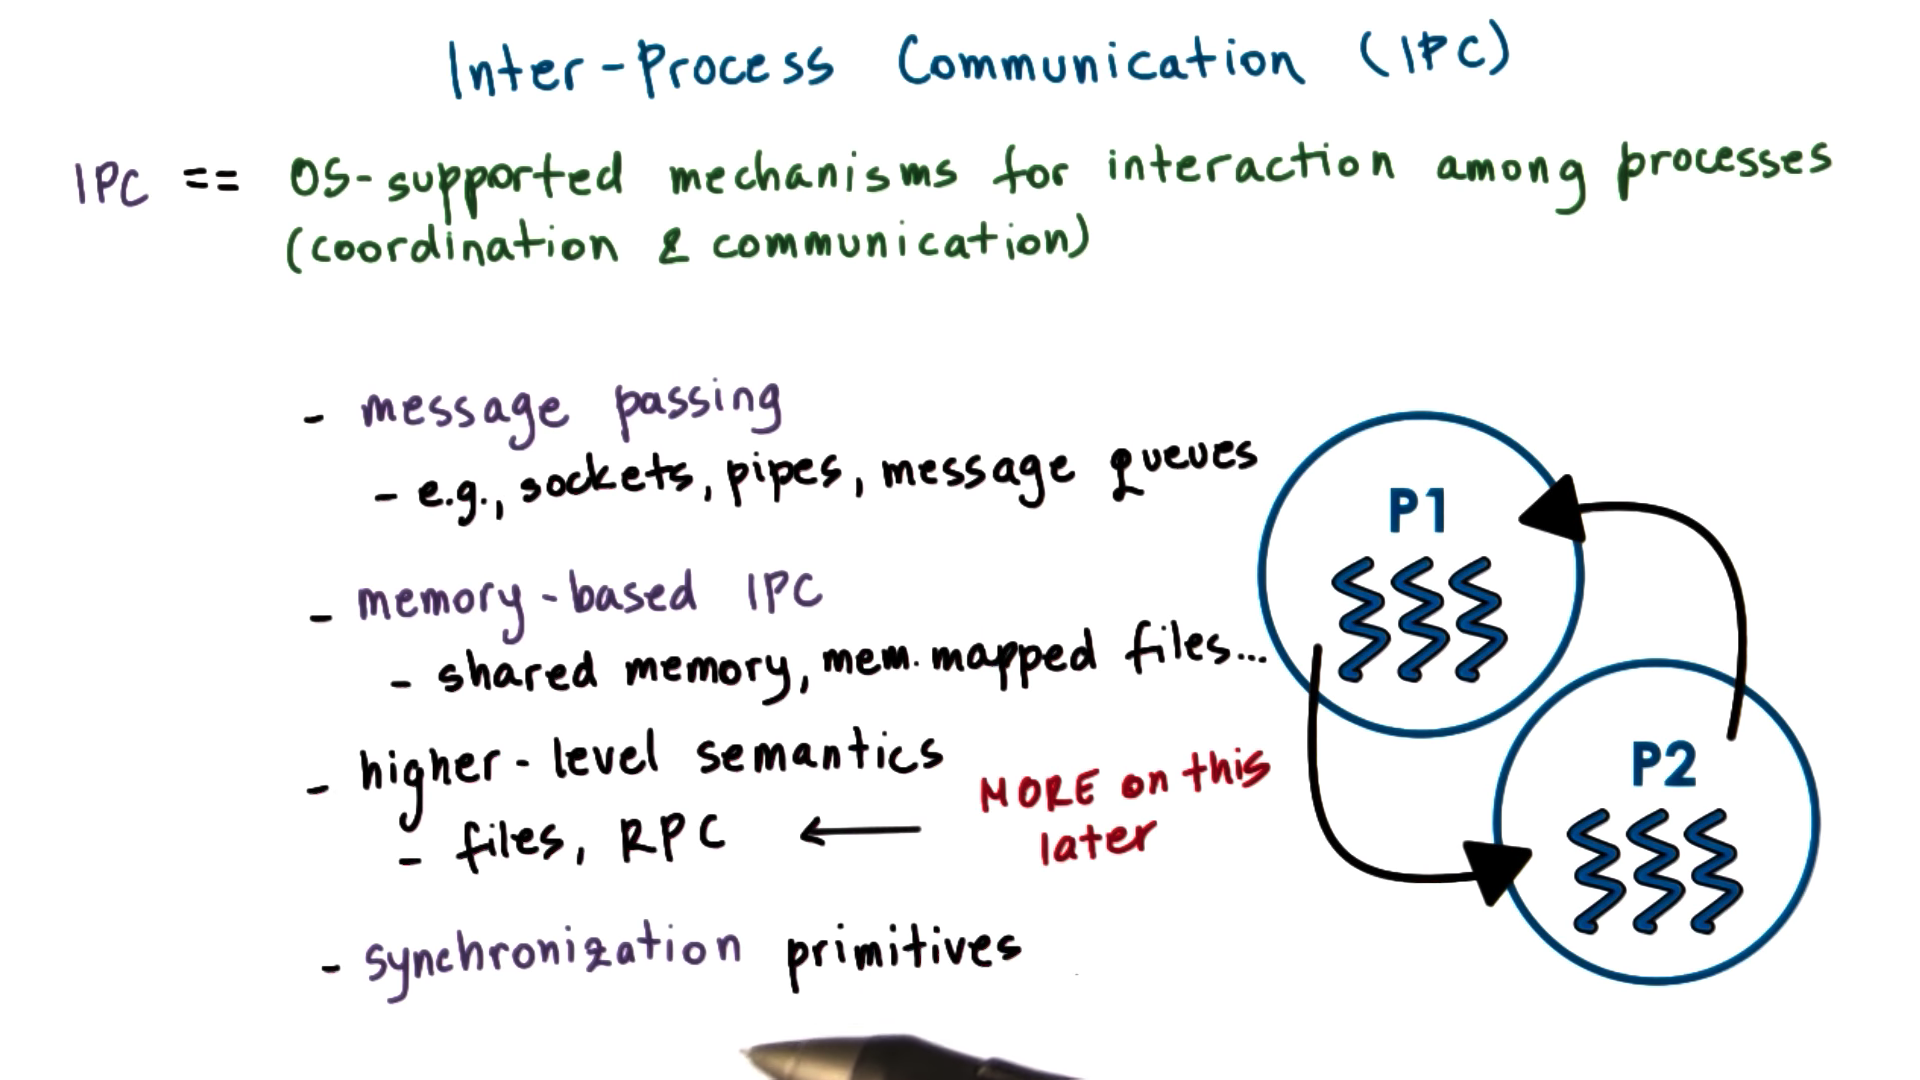 Inter-Process Communication (IPC)
IPC == OS-supported mechanisms for interaction among processes
(coordination & communication)
- message passing
- e.g., sockets, pipes, message queues
- memory-based IPC
- shared memory, mem. mapped files...
- higher-level semantics
- files, RPC ← MORE on this
later
- synchronization primitives
P1
P2